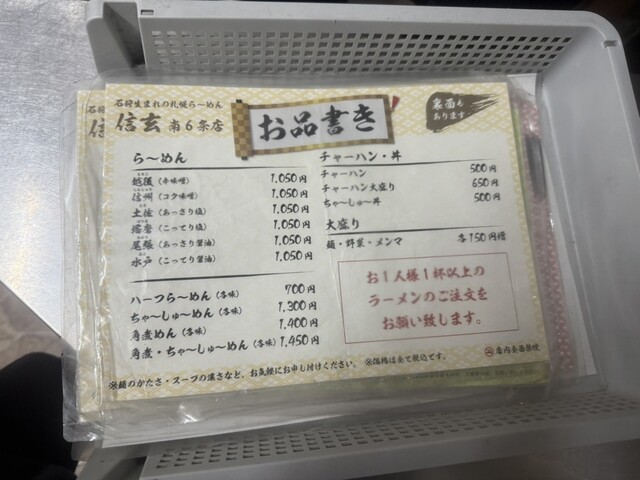 石狩生まれの札幌らーめん
信玄 南6条店
お品書き
裏面も
あります
ら〜めん
越後（辛味噌） 1,050円
信州（コク味噌） 1,050円
土佐（あっさり塩） 1,050円
播磨（こってり塩） 1,050円
尾張（あっさり醤油） 1,050円
水戸（こってり醤油） 1,050円
ハーフら〜めん（各味） 700円
ちゃ〜しゅ〜めん（各味） 1,300円
角煮めん（各味） 1,400円
角煮・ちゃ〜しゅ〜めん（各味） 1,450円
チャーハン・丼
チャーハン 500円
チャーハン大盛り 650円
ちゃ〜しゅ〜丼 500円
大盛り
麺・野菜・メンマ 各150円増
お1人様1杯以上の
ラーメンのご注文を
お願い致します。
店内全面禁煙
※麺のかたさ・スープの濃さなど、お気軽にお申し付けください。※価格は全て税込です。